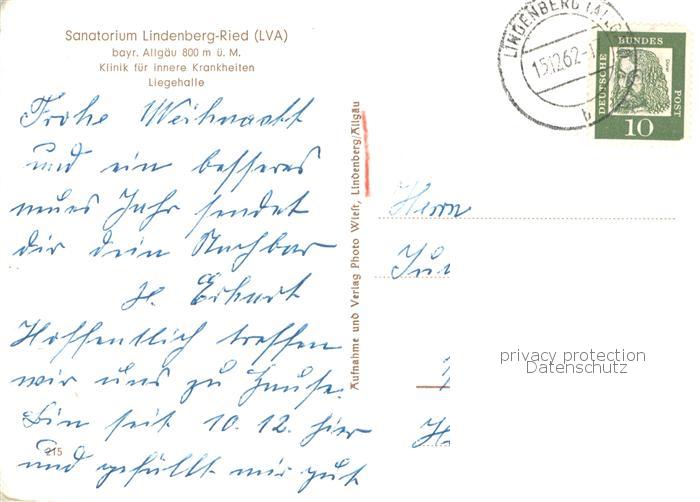 Sanatorium Lindenberg-Ried (LVA)
bayr. Allgäu 800 m ü. M.
Klinik für innere Krankheiten
Liegehalle
Frohe Weihnacht
und ein besseres
neues Jahr sendet
dir dein Nachbar
H. Erhart
Hoffentlich treffen
wir uns zu Hause.
Bin seit 10. 12. hier
und gefällt mir gut
215
Aufnahme und Verlag Photo Wiest, Lindenberg/Allgäu
LINDENBERG (ALLG
15.12.62-1
b
DEUTSCHE BUNDES POST
Dürer
10
Herrn
privacy protection
Datenschutz